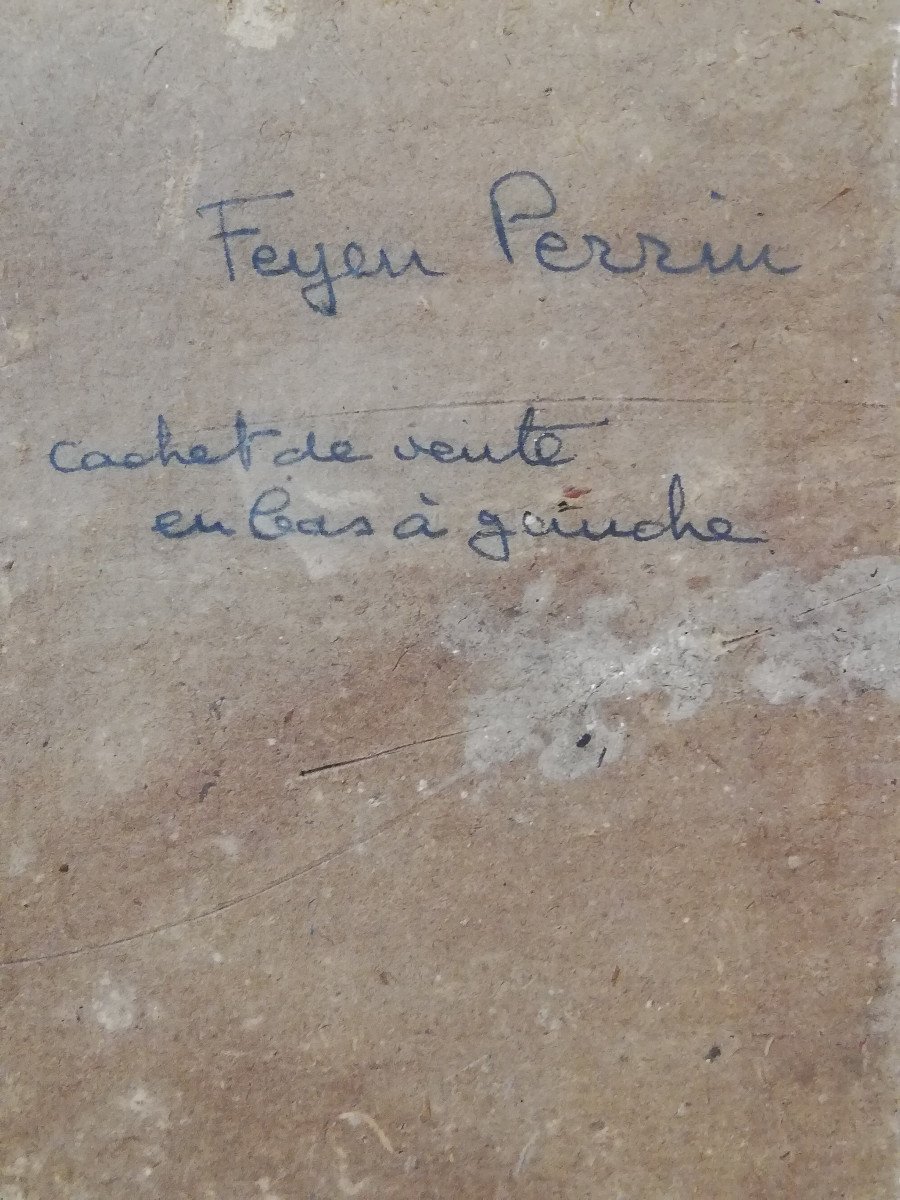 Feyen Perrin
cachet de vente
en bas à gauche